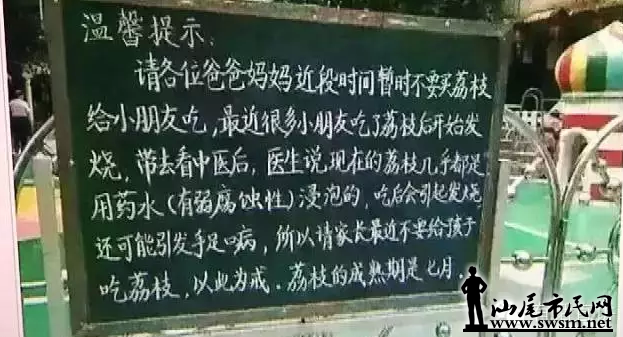 温馨提示:
请各位爸爸妈妈近段时间暂时不要买荔枝
给小朋友吃,最近很多小朋友吃了荔枝后开始发
烧,带去看中医后,医生说现在的荔枝几乎都是
用药水(有弱腐蚀性)浸泡的,吃后会引起发烧
还可能引发手足口病,所以请家长最近不要给孩子
吃荔枝,以此为戒.荔枝的成熟期是七月.
汕尾市民网
www.swsm.net